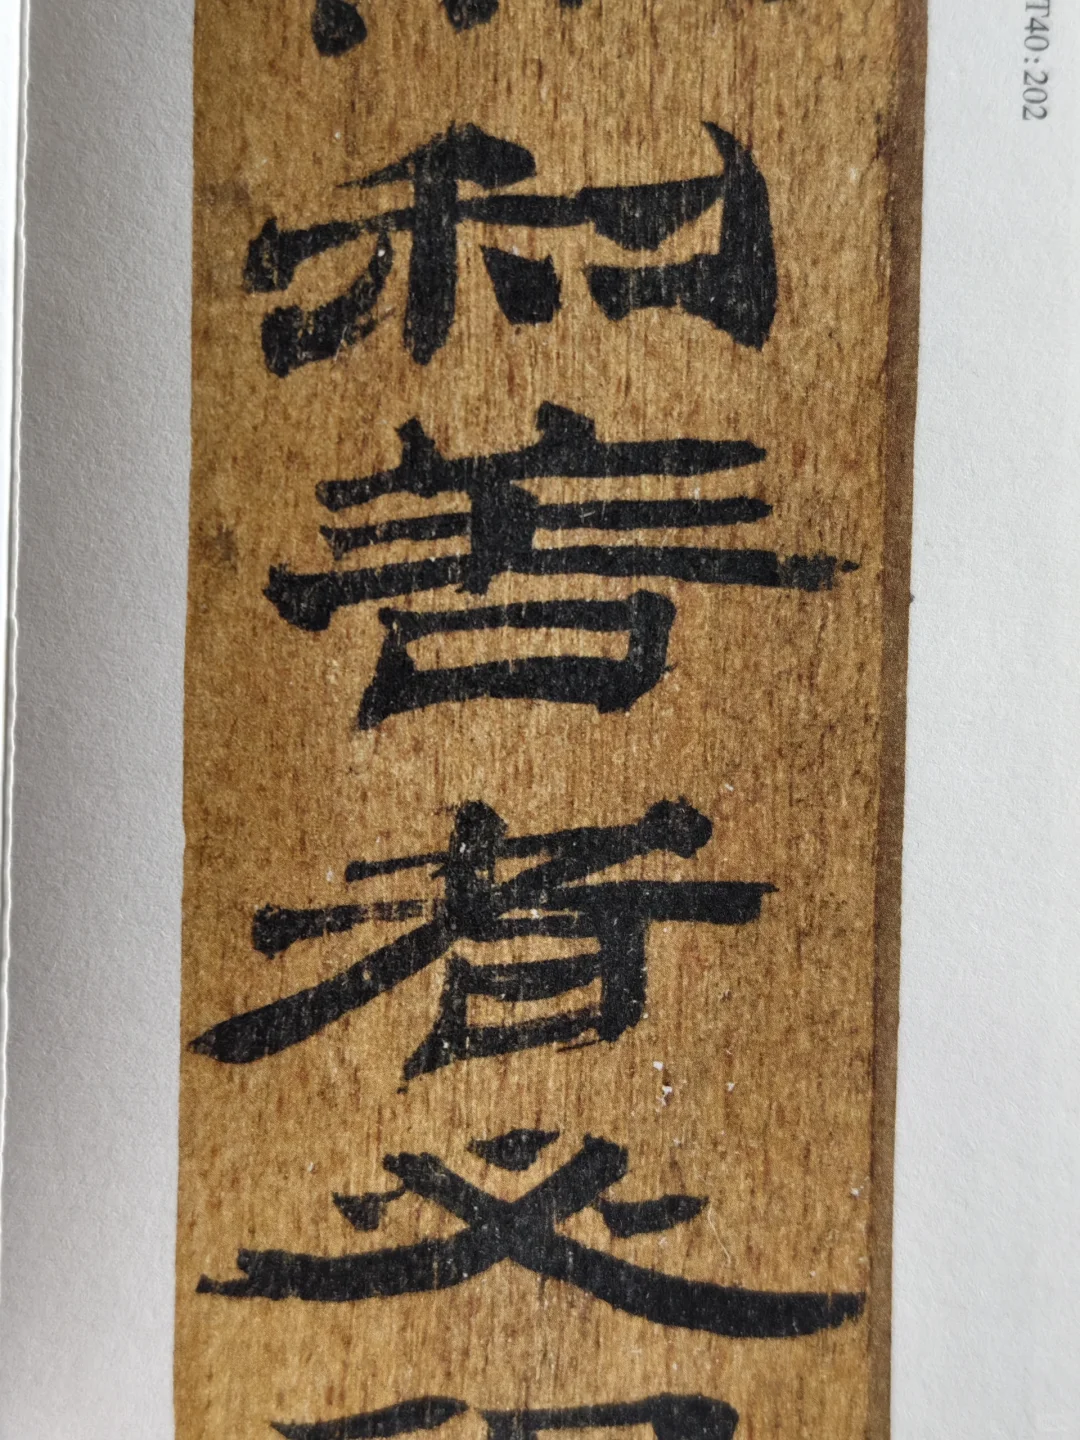 利善者必
T40:202